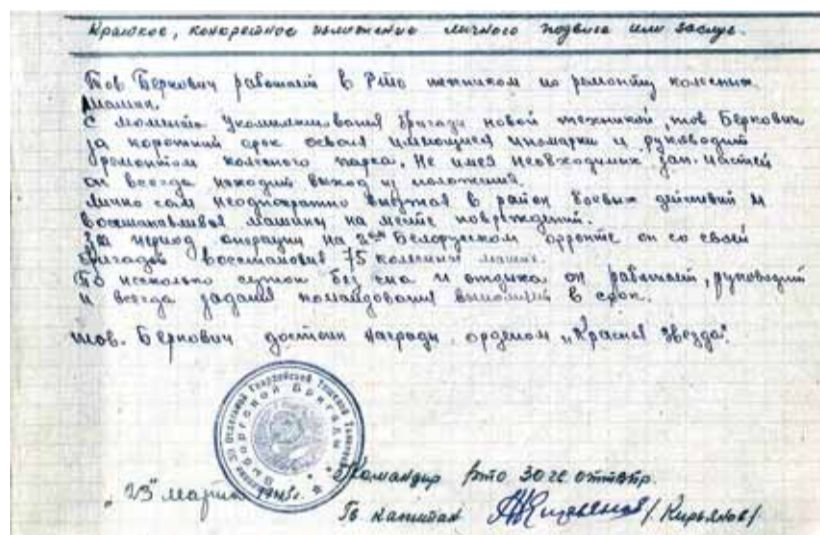 Краткое, конкретное изложение личного подвига или заслуг.
Тов Беркович работает в Рто техником по ремонту колесных
машин.
С момента укомплектования бригады новой техникой, тов Беркович
за короткий срок освоил имеющиеся иномарки и руководит
ремонтом колесного парка. Не имея необходимых зап. частей
он всегда находит выход из положения.
Лично сам неоднократно выезжал в район боевых действий и
восстанавливал машины на месте повреждений.
За период операции на 2ом Белорусском фронте он со своей
бригадой восстановил 75 колесных машин.
По несколько суток без сна и отдыха он работает, руководит
и всегда задания командования выполнял в срок.
тов. Беркович достоин награды орденом „Красная Звезда".
Отдельной Гвардейской Тяжелой Танковой
Выборгской Бригады
Командир рто 30 гв оттвбр.
„23" марта 1945г.
Гв капитан /Кирьянов/